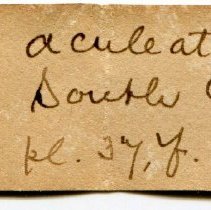 aculeat
Double
pl. 37, f.